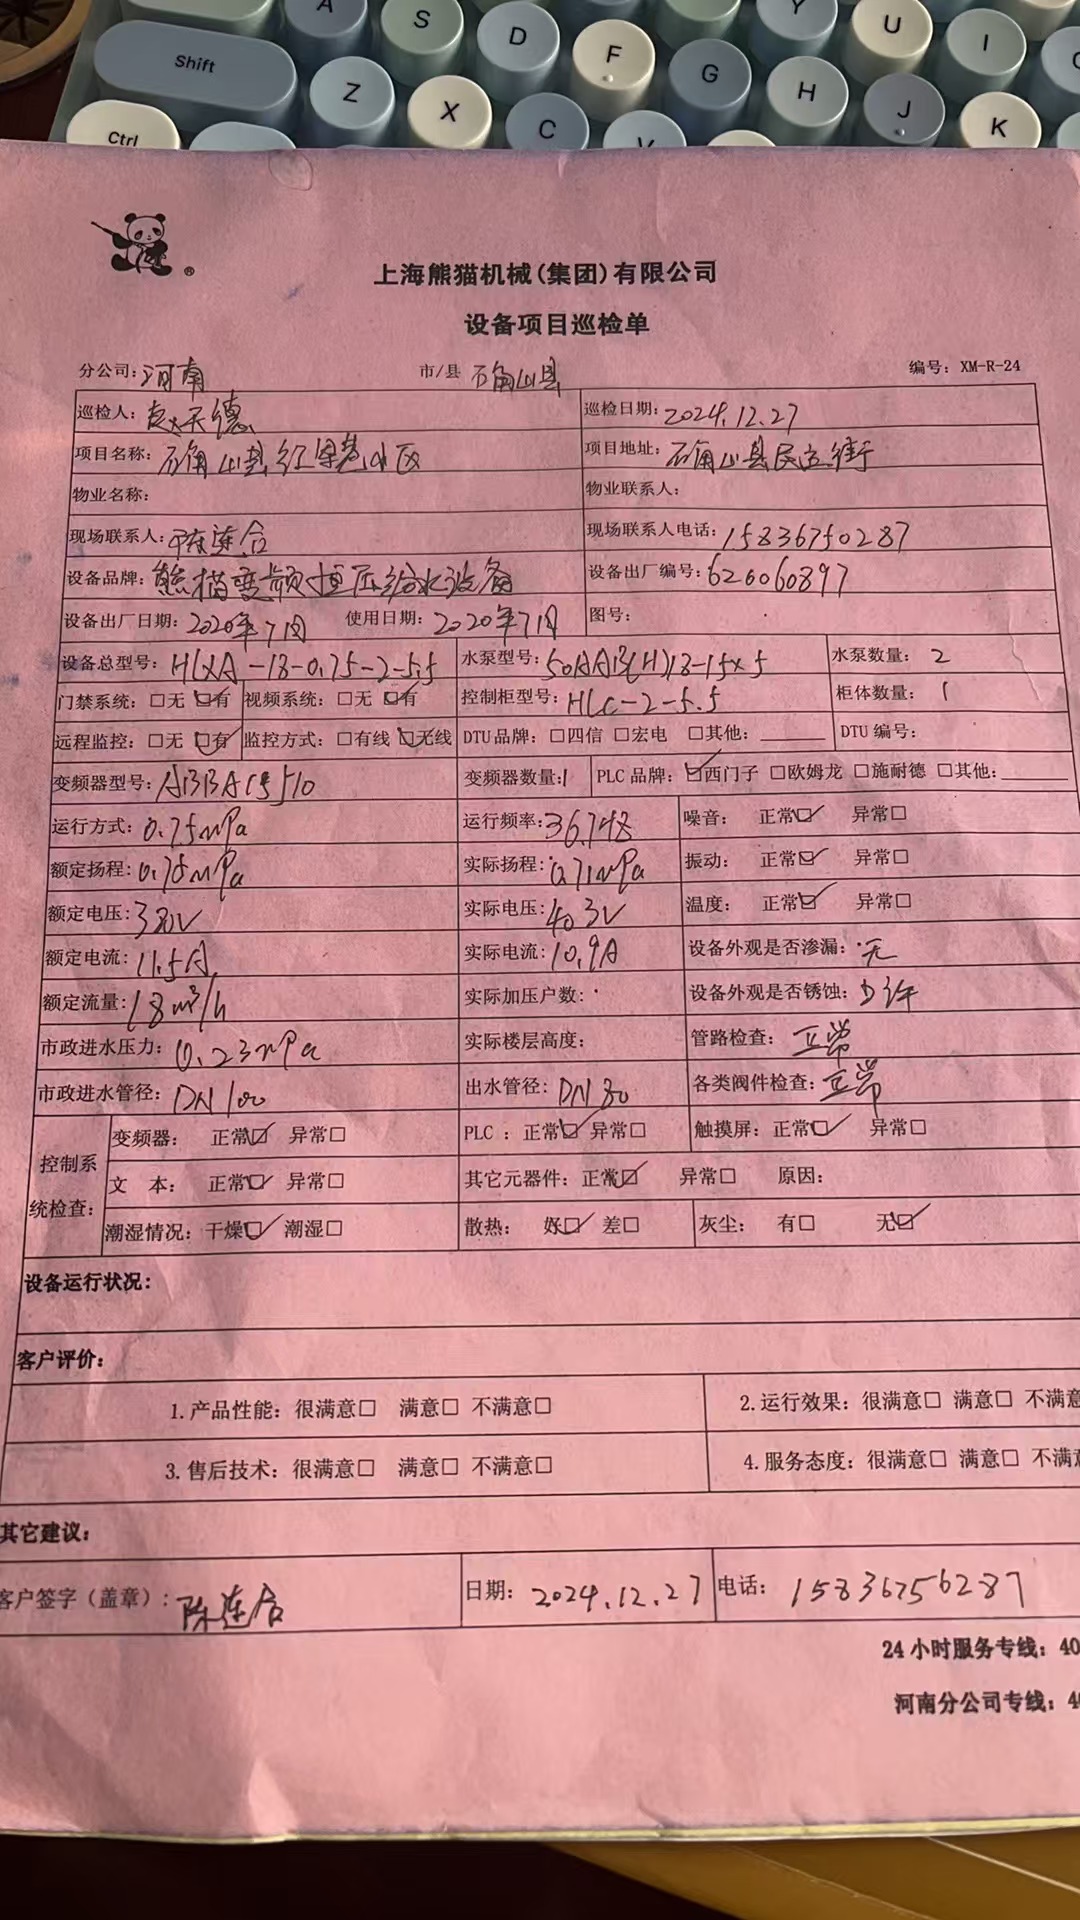 A S D F G Y U I
Shift Z X C V H J K
Ctrl
®
上海熊猫机械(集团)有限公司
设备项目巡检单
分公司: 河南 市/县 确山县 编号: XM-R-24
巡检人: 赵天德 巡检日期: 2024.12.27
项目名称: 确山县红 小区 项目地址: 确山县民主街
物业名称: 物业联系人:
现场联系人: 陈连合 现场联系人电话: 15836750287
设备品牌: 熊猫变频恒压给水设备 设备出厂编号: 626060897
设备出厂日期: 2020年7月 使用日期: 2020年7月 图号:
设备总型号: HLXA-18-0.75-2-5.5 水泵型号: 50AAB(H)18-15x5 水泵数量: 2
门禁系统: □无 ☑有 视频系统: □无 ☑有 控制柜型号: HLC-2-5.5 柜体数量: 1
远程监控: □无 ☑有 监控方式: □有线 ☑无线 DTU品牌: □四信 □宏电 □其他: ______ DTU编号:
变频器型号: ABBACS510 变频器数量: 1 PLC品牌: ☑西门子 □欧姆龙 □施耐德 □其他: ______
运行方式: 0.75MPa 运行频率: 36.7Hz 噪音: 正常☑ 异常□
额定扬程: 0.75MPa 实际扬程: 0.71MPa 振动: 正常☑ 异常□
额定电压: 380V 实际电压: 403V 温度: 正常☑ 异常□
额定电流: 11.5A 实际电流: 10.9A 设备外观是否渗漏: 无
额定流量: 18m³/h 实际加压户数: 设备外观是否锈蚀: 少许
市政进水压力: 0.23MPa 实际楼层高度: 管路检查: 正常
市政进水管径: DN100 出水管径: DN80 各类阀件检查: 正常
控制系统检查: 变频器: 正常☑ 异常□ PLC: 正常☑ 异常□ 触摸屏: 正常☑ 异常□
文 本: 正常☑ 异常□ 其它元器件: 正常☑ 异常□ 原因:
潮湿情况: 干燥☑ 潮湿□ 散热: 好☑ 差□ 灰尘: 有□ 无☑
设备运行状况:
客户评价:
1.产品性能: 很满意□ 满意□ 不满意□ 2.运行效果: 很满意□ 满意□ 不满意
3.售后技术: 很满意□ 满意□ 不满意□ 4.服务态度: 很满意□ 满意□ 不满意
其它建议:
客户签字（盖章）: 陈连合 日期: 2024.12.27 电话: 15836756287
24小时服务专线: 40
河南分公司专线: 4